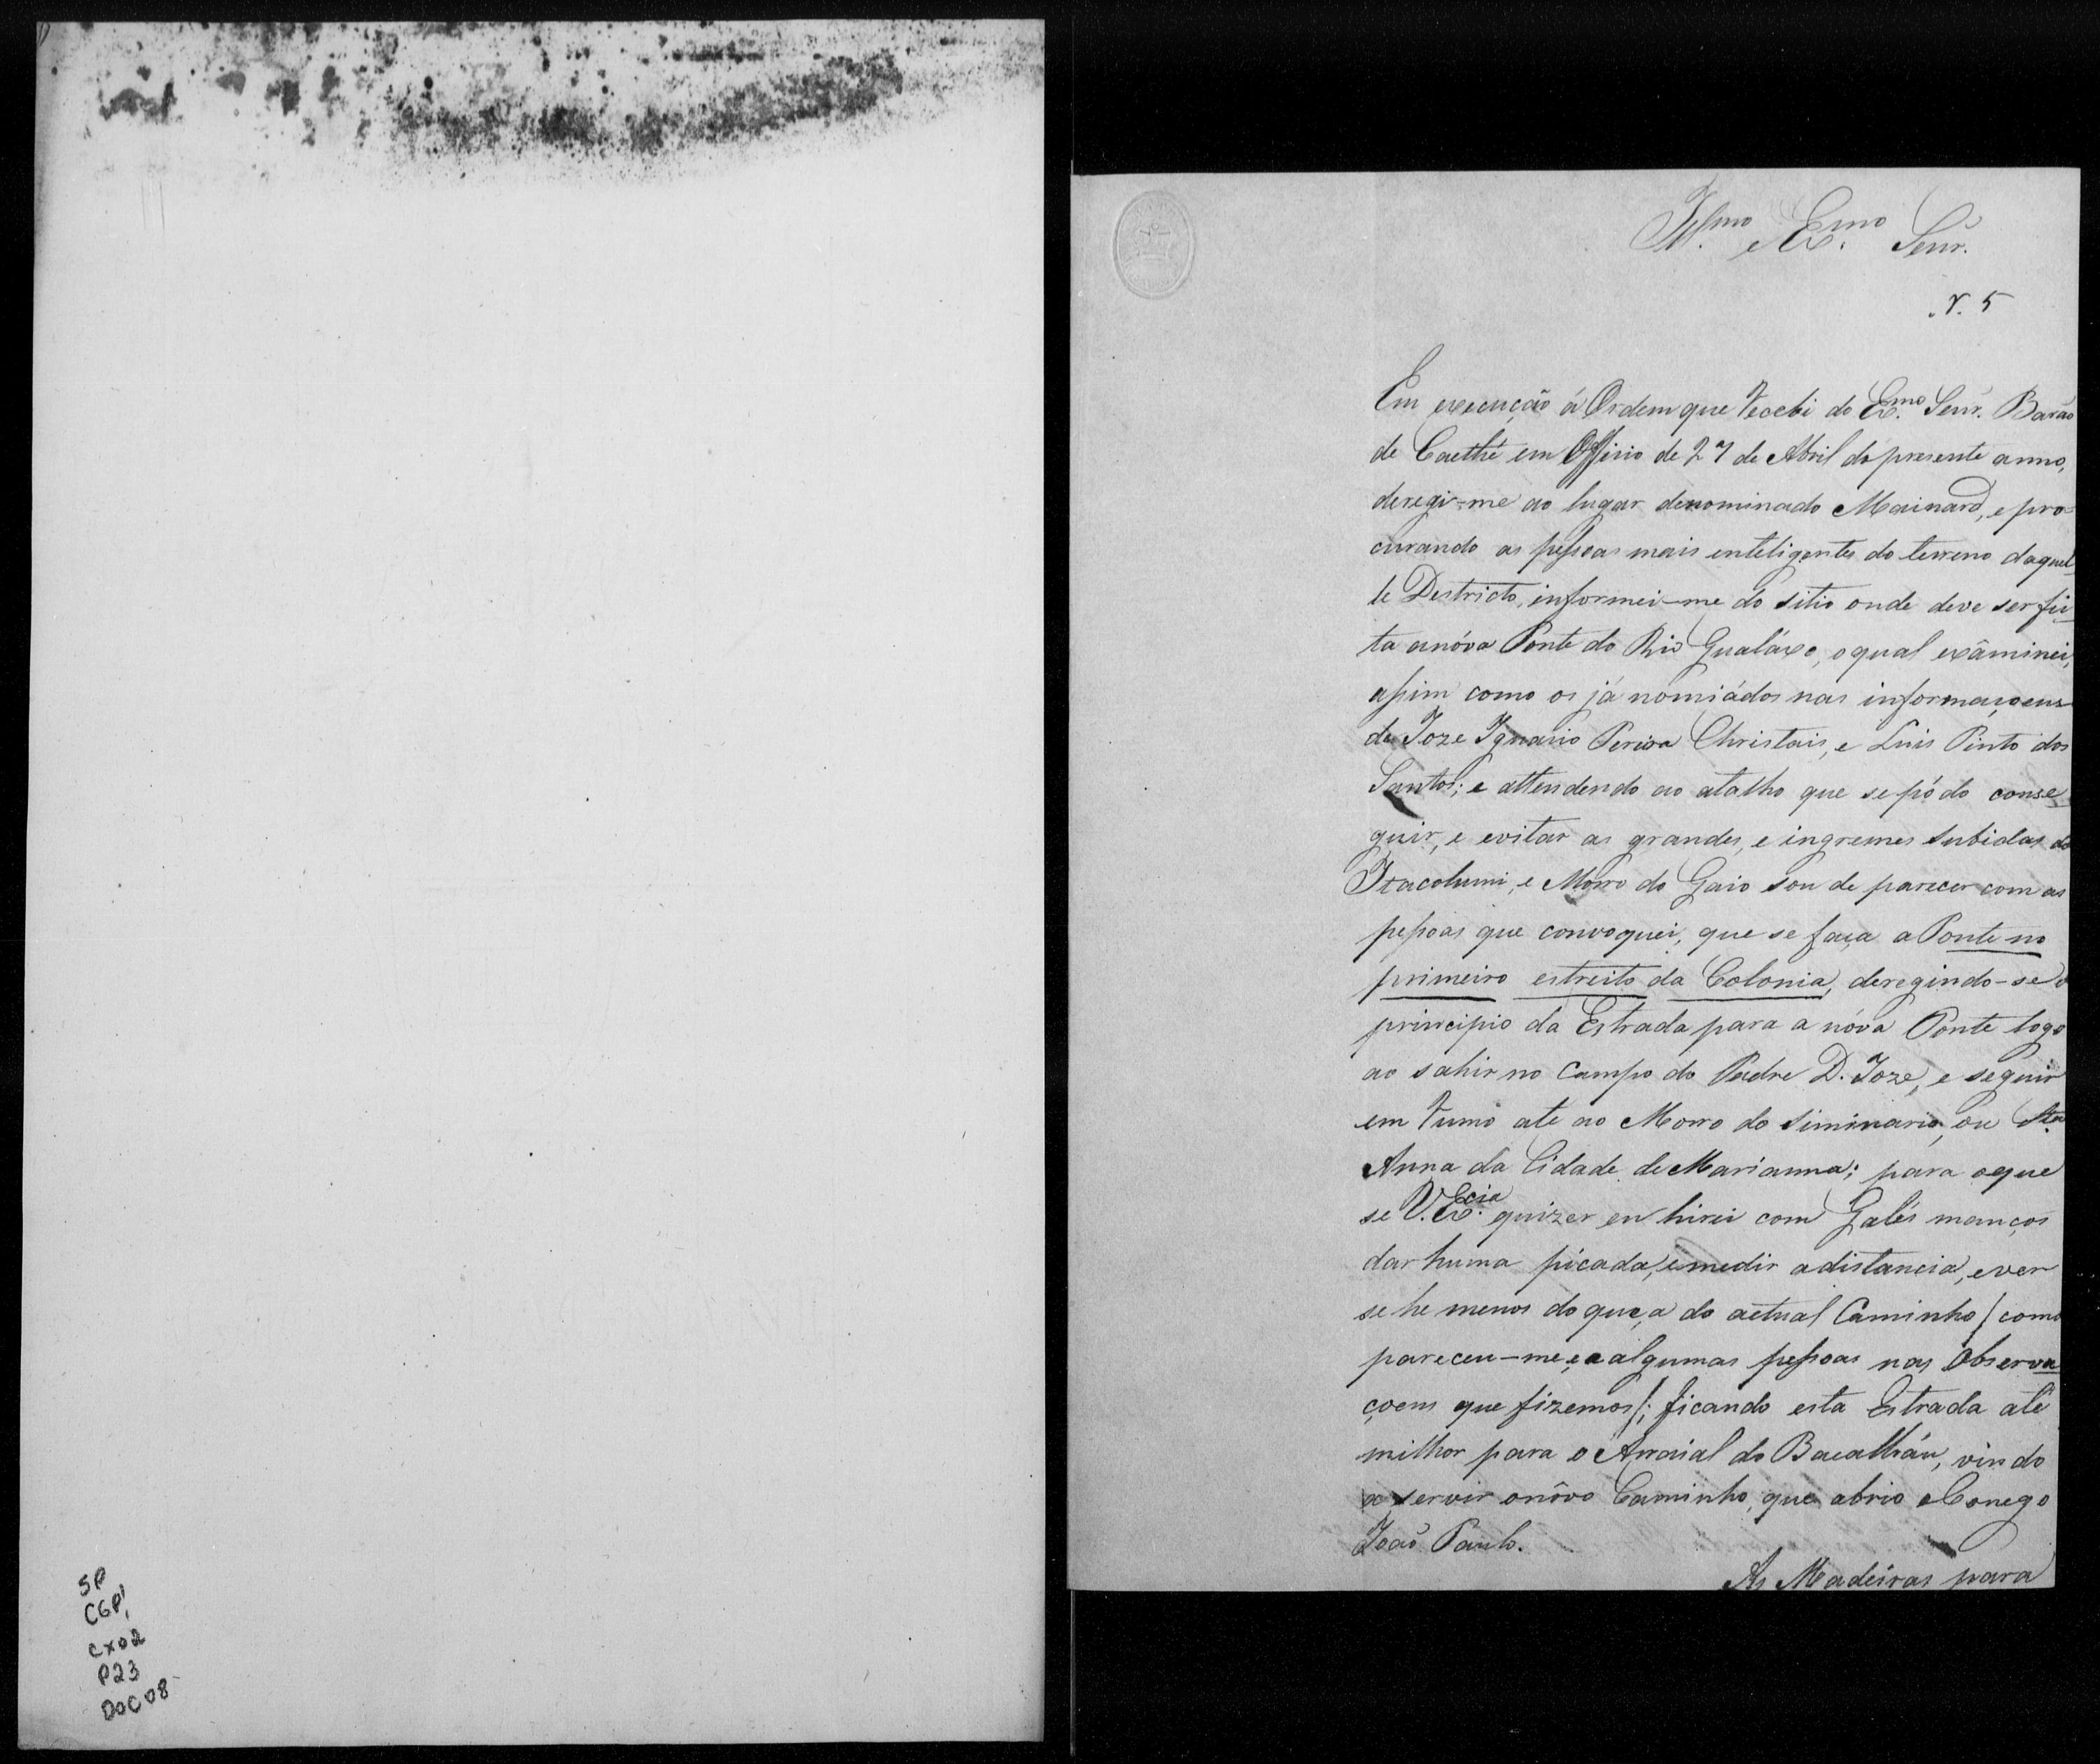 SP
CGP1
CX02
P23
DOC08
Illmo e Exmo Senr.
N. 5
Em execução á Ordem que recebi do Exmo Senr. Barão
de Caethé em Officio de 27 de Abril do presente anno,
deregi-me ao lugar denominado Mainard, e pro-
curando as pessoas mais enteligentes do terreno daquel-
le Destricto, informei-me do sitio onde deve ser fei-
ta a nóva Ponte do Rio Gualáxo, o qual exâminei,
assim como os já nomiádos nas informaçoens
de Joze Ignacio Christais, e Luis Pinto dos
Santos; e attendendo ao atalho que se póde conse-
guir, e evitar as grandes, e ingremes subidas do
Itacolumi, e Morro do Gaio sou de parecer com as
pessoas que convoquei, que se faça a Ponte no
primeiro estreito da Colonia, deregindo-se o
principio da Estrada para a nóva Ponte logo
ao sahir no Campo do Padre D. Joze, e seguir
em rumo ate ao Morro do Siminario, ou Sta
Anna da Cidade de Marianna; para o que
se V. Excia quizer eu hirei com Galés manços
dar huma picada, e medir a distancia, e ver
se he menos do que, a do actual Caminho / como
pareceu-me, e a algumas pessoas nas Observa-
çoens que fizemos /; ficando esta Estrada até
milhor para o Arraial do Bacalháu, vindo
a servir o nôvo Caminho, que abrio o Conego
João Paulo.
As Madeiras para